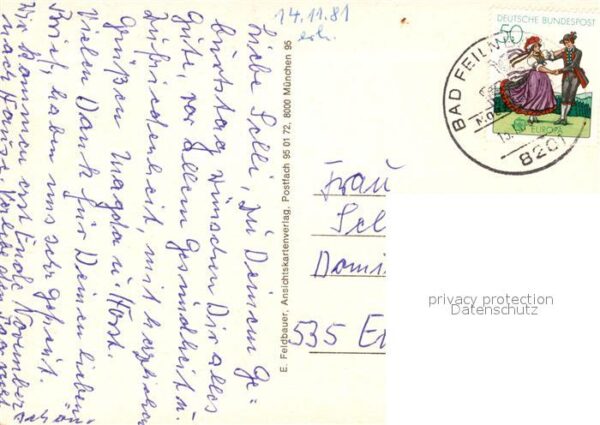 14.11.81
erh.
DEUTSCHE BUNDESPOST
50
EUROPA
BAD FEILN
8201
Liebe Solli, zu Deinem Ge=
burtstag wünschen Dir alles
Gute, vor allem Gesundheit u.
Zufriedenheit, mit herzlichen
Grüßen Magda u. Horst.
Vielen Dank für Deinen lieben
Brief, haben uns sehr gefreut.
Wir kommen erst Ende November
nach Hause.
E. Feldbauer, Ansichtskartenverlag, Postfach 95 01 72, 8000 München 95
Frau
Domi
535 E
privacy protection
Datenschutz